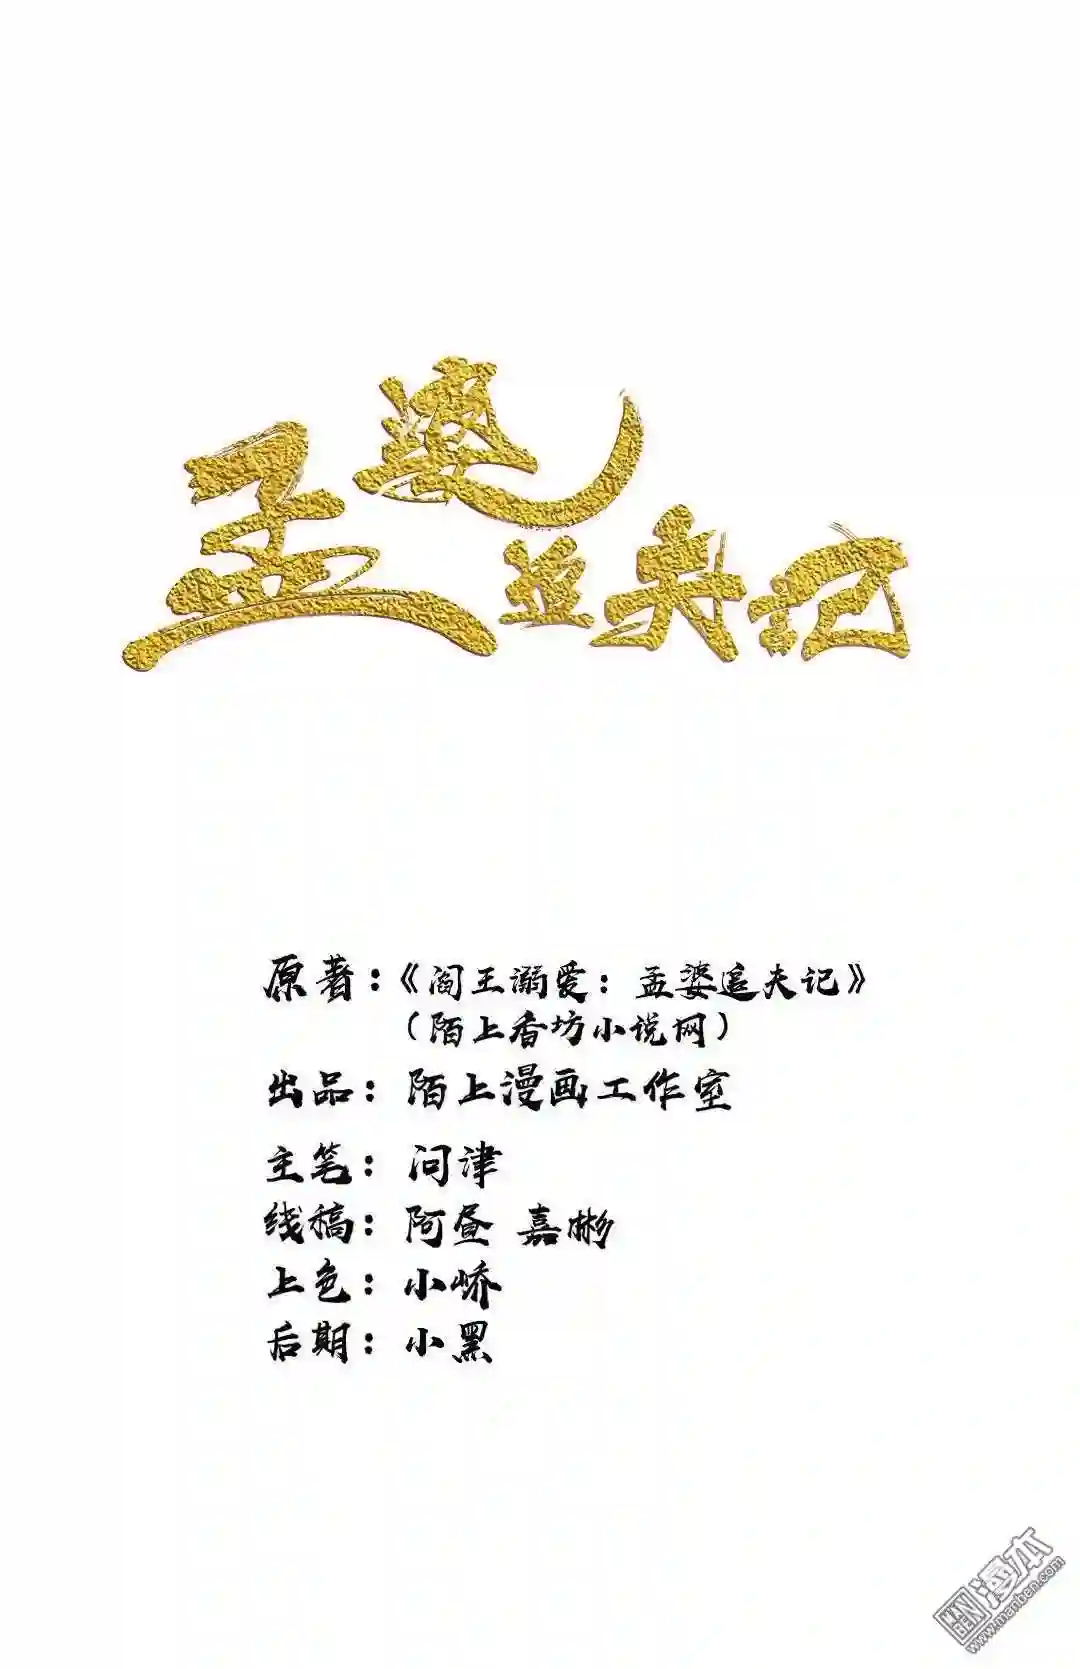 孟婆追夫记
原著：《阎王溺爱：孟婆追夫记》
（陌上香坊小说网）
出品：陌上漫画工作室
主笔：问津
线稿：阿昼 嘉彬
上色：小峤
后期：小黑
MANBEN漫本
www.manben.com